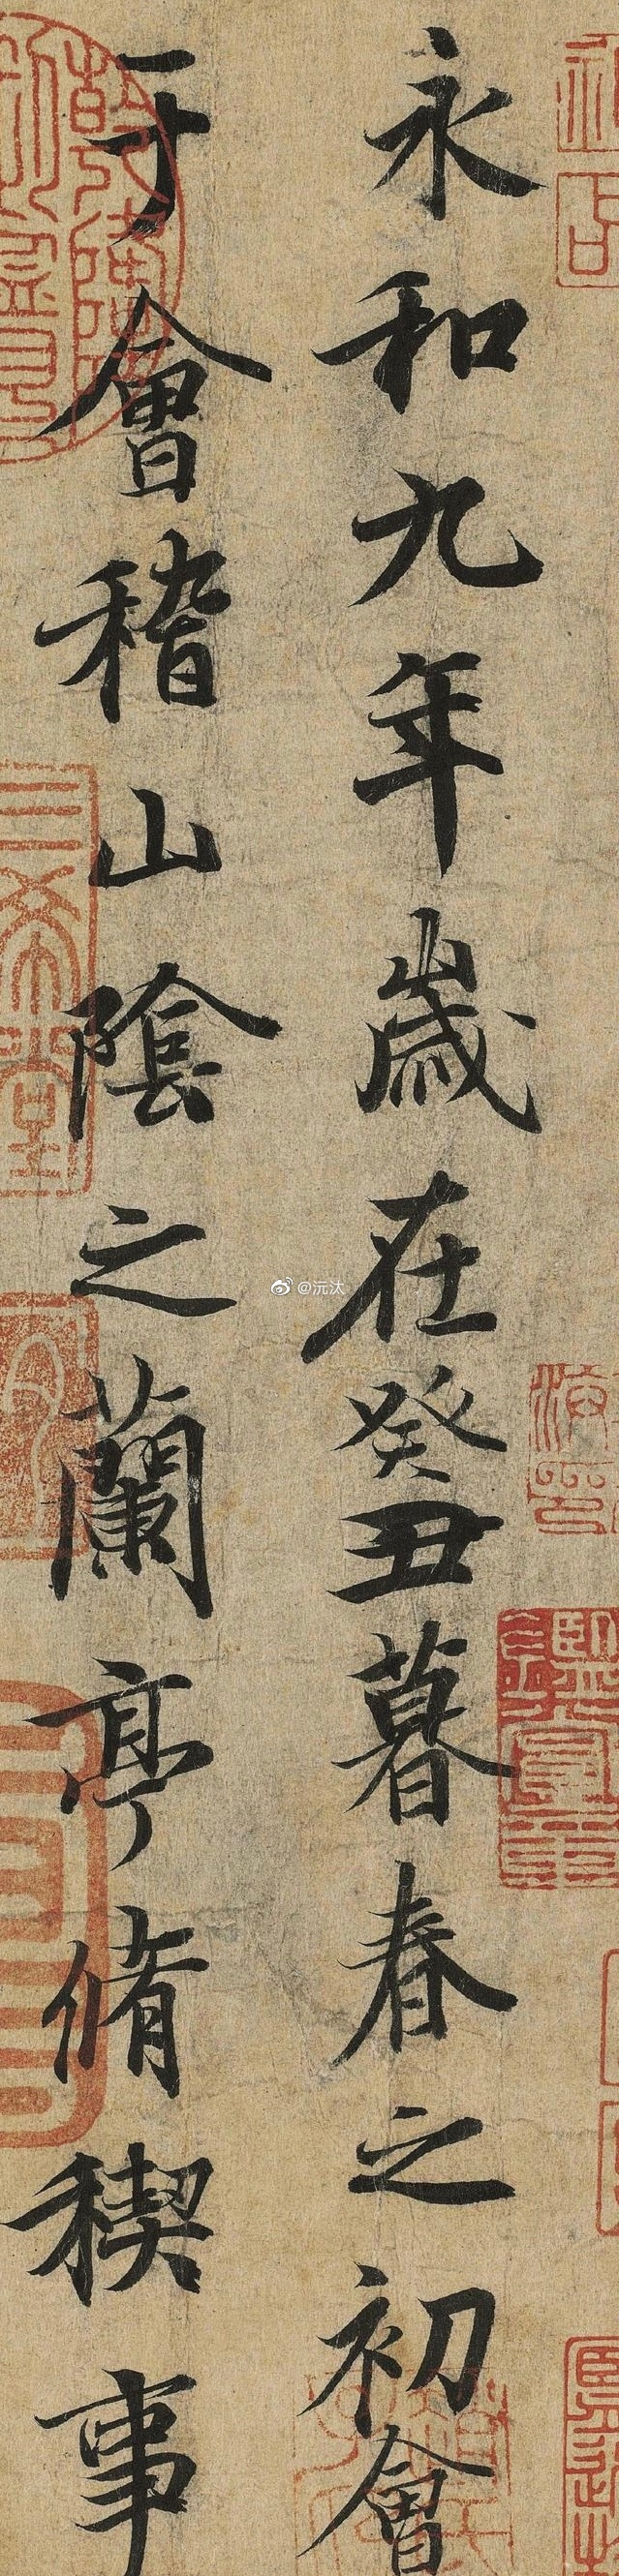 永和九年歲在癸丑暮春之初會
于會稽山陰之蘭亭脩稧事
三希堂
@沅汰